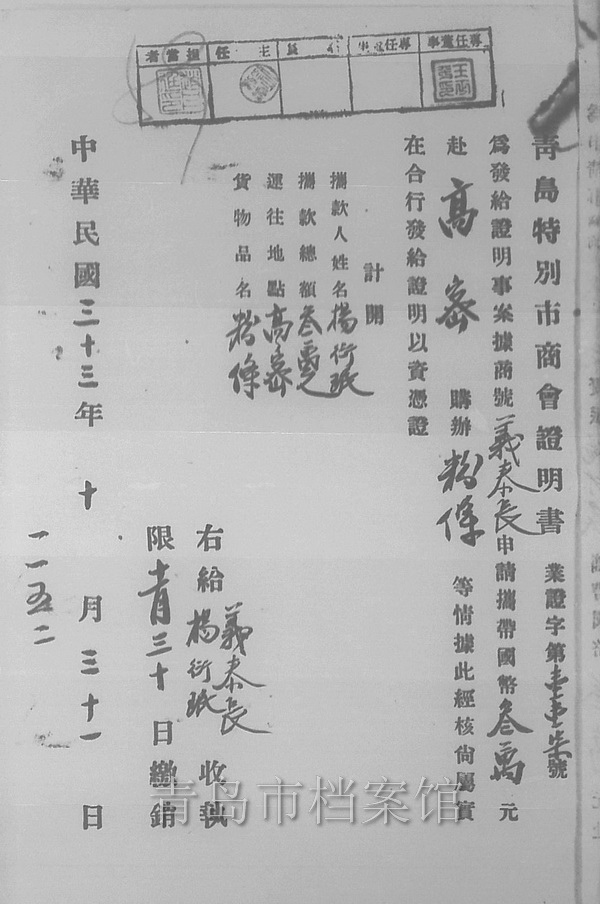 青島特別市商會證明書 業證字第壹壹柒號
爲發給證明事案據商號義泰長申請攜帶國幣叁萬元
赴高密購辦粉條等情據此經核尙屬實
在合行發給證明以資憑證
計開
攜款人姓名楊衍珉
攜款總額叁萬元
運往地點高密
貨物品名粉條
右給義泰長楊衍珉收執
限十一月三十日繳銷
中華民國三十三年十月三十一日
一一五二
專任董事
專任董事
員
主任
擔當者
青岛市档案馆